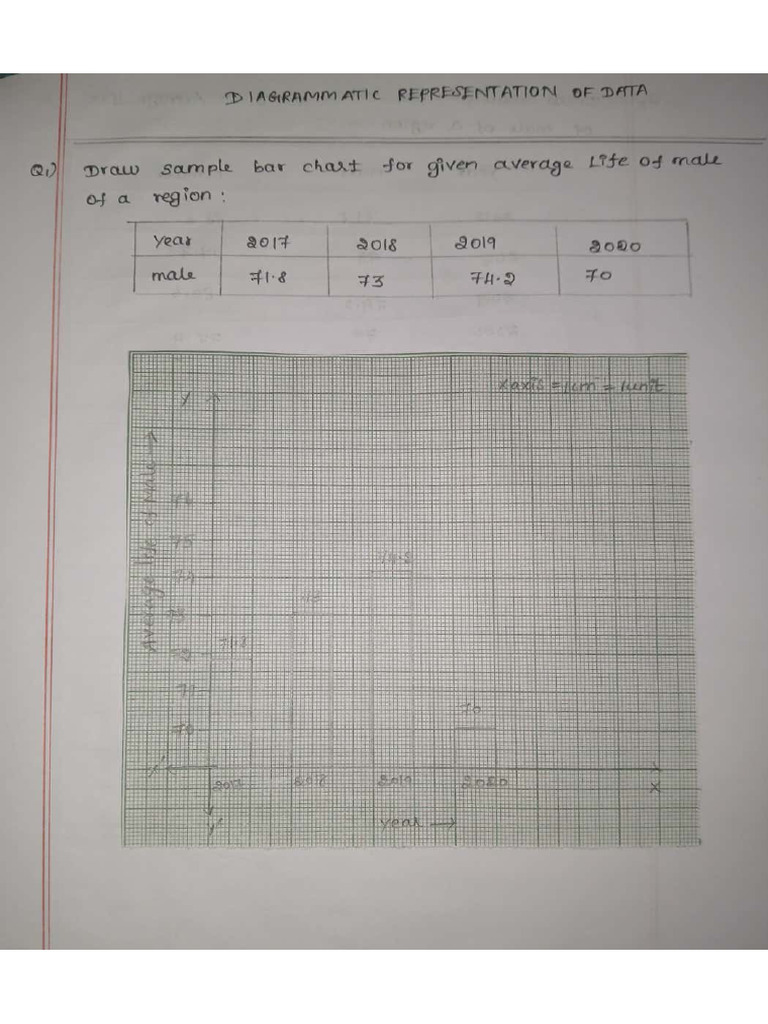 DIAGRAMMATIC REPRESENTATION OF DATA
Q1) Draw sample bar chart for given average Life of male
of a region:
year 2017 2018 2019 2020
male 71.8 73 74.2 70
X axis = 1cm = 1unit
Y
Average life of Male →
76
75
74.2
74
73
73
71.8
72
71
70
70
X'
X
2017 2018 2019 2020
Y'
year →